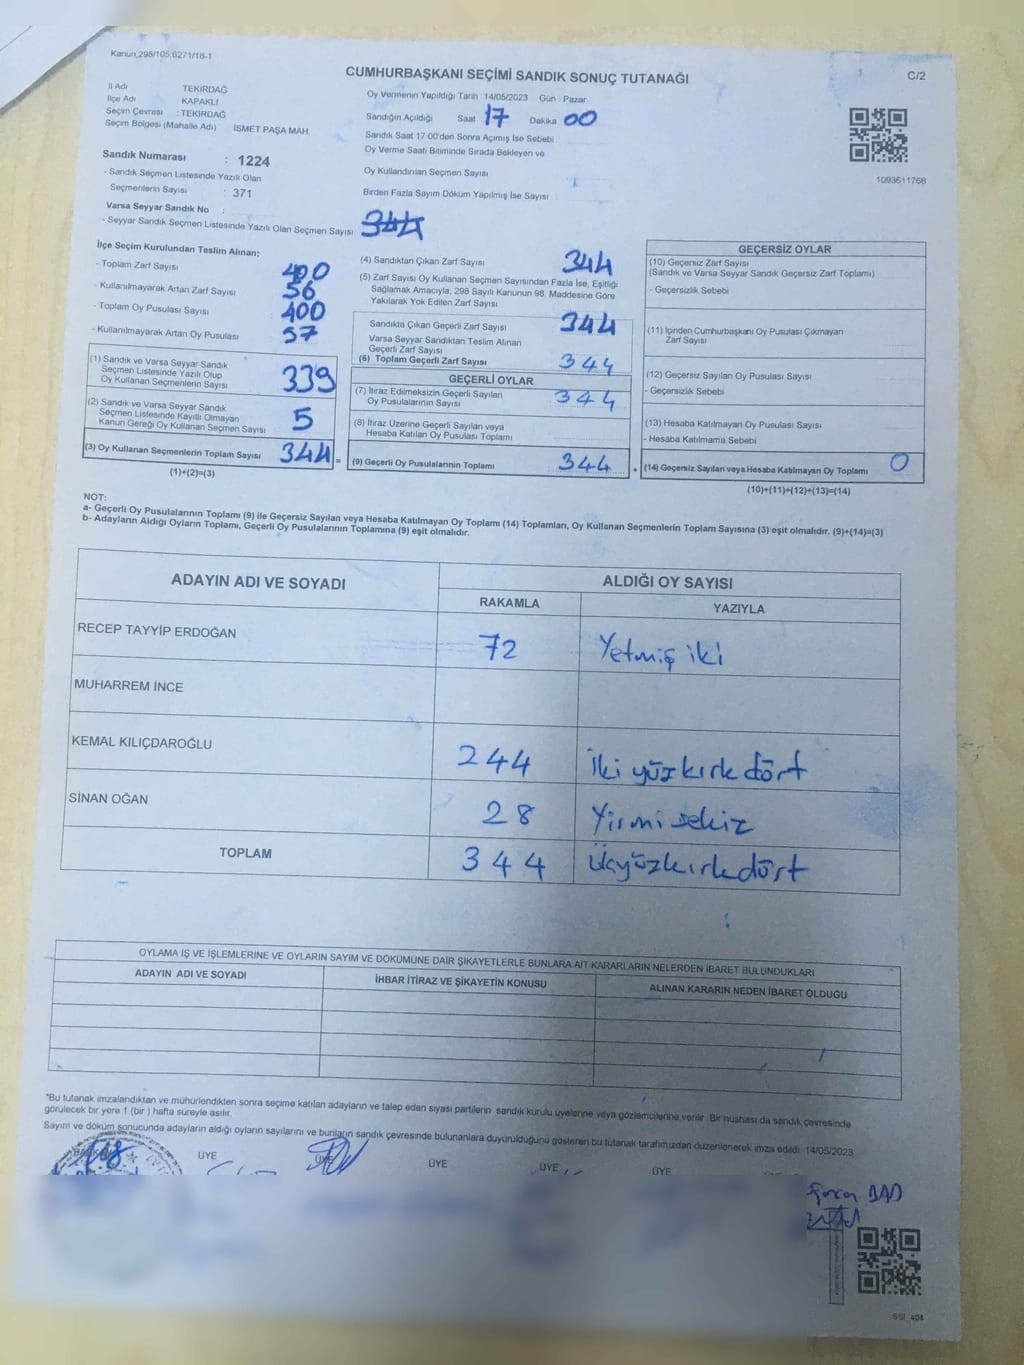 Kanun 298/105,6271/18-1
CUMHURBAŞKANI SEÇİMİ SANDIK SONUÇ TUTANAĞI
C/2
İl Adı TEKİRDAĞ
İlçe Adı KAPAKLI
Seçim Çevresi : TEKİRDAĞ
Seçim Bölgesi (Mahalle Adı) İSMET PAŞA MAH
Oy Vermenin Yapıldığı Tarih 14/05/2023 Gün : Pazar
Sandığın Açıldığı Saat 17 Dakika 00
Sandık Saat 17:00'den Sonra Açımış İse Sebebi
Oy Verme Saati Bitiminde Sırada Bekleyen ve
Oy Kullandırılan Seçmen Sayısı
Birden Fazla Sayım Döküm Yapılmış İse Sayısı
1093611768
Sandık Numarası : 1224
- Sandık Seçmen Listesinde Yazılı Olan
Seçmenlerin Sayısı : 371
Varsa Seyyar Sandık No :
- Seyyar Sandık Seçmen Listesinde Yazılı Olan Seçmen Sayısı 344
İlçe Seçim Kurulundan Teslim Alınan;
- Toplam Zarf Sayısı 400
- Kullanılmayarak Artan Zarf Sayısı 56
- Toplam Oy Pusulası Sayısı 400
- Kullanılmayarak Artan Oy Pusulası 57
(1) Sandık ve Varsa Seyyar Sandık
Seçmen Listesinde Yazılı Olup
Oy Kullanan Seçmenlerin Sayısı 339
(2) Sandık ve Varsa Seyyar Sandık
Seçmen Listesinde Kayıtlı Olmayan
Kanun Gereği Oy Kullanan Seçmen Sayısı 5
(3) Oy Kullanan Seçmenlerin Toplam Sayısı 344 =
(1)+(2)=(3)
(4) Sandıktan Çıkan Zarf Sayısı 344
(5) Zarf Sayısı Oy Kullanan Seçmen Sayısından Fazla İse, Eşitliği
Sağlamak Amacıyla, 298 Sayılı Kanunun 98. Maddesine Göre
Yakılarak Yok Edilen Zarf Sayısı
Sandıkta Çıkan Geçerli Zarf Sayısı 344
Varsa Seyyar Sandıktan Teslim Alınan
Geçerli Zarf Sayısı
(6) Toplam Geçerli Zarf Sayısı 344
GEÇERLİ OYLAR
(7) İtiraz Edilmeksizin Geçerli Sayılan
Oy Pusulalarının Sayısı 344
(8) İtiraz Üzerine Geçerli Sayılan veya
Hesaba Katılan Oy Pusulası Toplamı
(9) Geçerli Oy Pusulalarının Toplamı 344 +
GEÇERSİZ OYLAR
(10) Geçersiz Zarf Sayısı
(Sandık ve Varsa Seyyar Sandık Geçersiz Zarf Toplamı)
- Geçersizlik Sebebi
(11) İçinden Cumhurbaşkanı Oy Pusulası Çıkmayan
Zarf Sayısı
(12) Geçersiz Sayılan Oy Pusulası Sayısı
- Geçersizlik Sebebi
(13) Hesaba Katılmayan Oy Pusulası Sayısı
- Hesaba Katılmama Sebebi
(14) Geçersiz Sayılan veya Hesaba Katılmayan Oy Toplamı 0
(10)+(11)+(12)+(13)=(14)
NOT:
a- Geçerli Oy Pusulalarının Toplamı (9) ile Geçersiz Sayılan veya Hesaba Katılmayan Oy Toplamı (14) Toplamları, Oy Kullanan Seçmenlerin Toplam Sayısına (3) eşit olmalıdır. (9)+(14)=(3)
b- Adayların Aldığı Oyların Toplamı, Geçerli Oy Pusulalarının Toplamına (9) eşit olmalıdır.
ADAYIN ADI VE SOYADI
ALDIĞI OY SAYISI
RAKAMLA YAZIYLA
RECEP TAYYİP ERDOĞAN 72 Yetmiş iki
MUHARREM İNCE
KEMAL KILIÇDAROĞLU 244 İki yüzkırk dört
SİNAN OĞAN 28 Yirmi sekiz
TOPLAM 344 Üçyüzkırkdört
OYLAMA İŞ VE İŞLEMLERİNE VE OYLARIN SAYIM VE DÖKÜMÜNE DAİR ŞİKAYETLERLE BUNLARA AİT KARARLARIN NELERDEN İBARET BULUNDUKLARI
ADAYIN ADI VE SOYADI İHBAR İTİRAZ VE ŞİKAYETİN KONUSU ALINAN KARARIN NEDEN İBARET OLDUĞU
"Bu tutanak imzalandıktan ve mühürlendikten sonra seçime katılan adayların ve talep eden siyasi partilerin sandık kurulu üyelerine veya gözlemcilerine verilir. Bir nüshası da sandık çevresinde
görülecek bir yere 1 (bir ) hafta süreyle asılır.
Sayım ve döküm sonucunda adayların aldığı oyların sayılarını ve bunların sandık çevresinde bulunanlara duyurulduğunu gösteren bu tutanak tarafımızdan düzenlenerek imza edildi. 14/05/2023
ÜYE ÜYE ÜYE ÜYE ÜYE
SSI_404